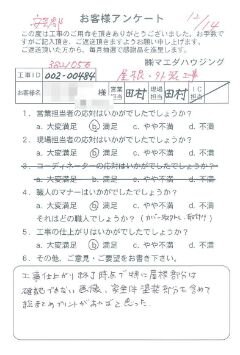 12/14
お客様アンケート
この度は工事のご用命を頂きありがとうございました。お手数で
すがご記入頂き、ご返送頂きますようお願い申し上げます。
ご返送頂いた方から、毎月抽選で感謝品を進呈します。
㈱マエダハウジング
工事ID 002-00484 屋根・外装工事
お客様名 営業担当 田村 現場担当 田村 IC担当
1. 営業担当者の応対はいかがでしたでしょうか?
a. 大変満足 b. 満足 c. やや不満 d. 不満
2. 現場担当者の応対はいかがでしたでしょうか?
a. 大変満足 b. 満足 c. やや不満 d. 不満
3. コーディネーターの応対はいかがでしたでしょうか?
a. 大変満足 b. 満足 c. やや不満 d. 不満
4. 職人のマナーはいかがでしたでしょうか?
a. 大変満足 b. 満足 c. やや不満 d. 不満
それはどの職人でしょうか?
5. 工事の仕上がりはいかがでしたでしょうか?
a. 大変満足 b. 満足 c. やや不満 d. 不満
6. その他、ご意見・ご要望をお書き下さい。
工事仕上がり終了時点で特に屋根部分は
確認できない 塗装部分も含めて
があればと思った。